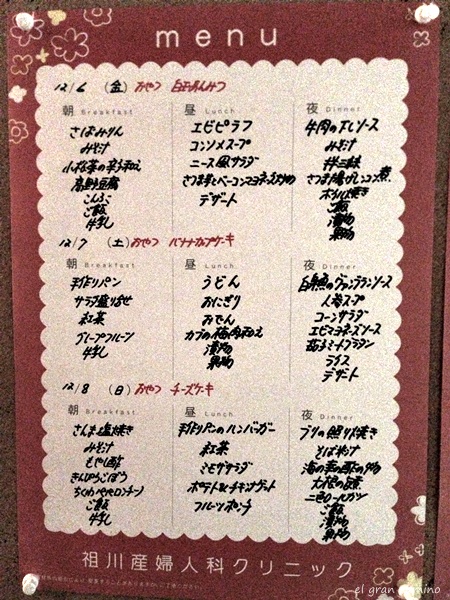 menu
12/6 (金) おやつ 白玉あんみつ
朝 Breakfast
さばみりん
みそ汁
小松菜の辛子和え
高野豆腐
こんぶ
ご飯
牛乳
昼 Lunch
エビピラフ
コンソメスープ
ニース風サラダ
さつま芋とベーコンマヨネーズ炒め
デザート
夜 Dinner
牛肉の下しソース
みそ汁
さつま揚げとコンニャク煮
ホイル焼き
ご飯
漬物
果物
12/7 (土) おやつ バナナカップケーキ
朝 Breakfast
手作りパン
サラダ盛り合せ
紅茶
グレープフルーツ
牛乳
昼 Lunch
うどん
おにぎり
おでん
カブの梅肉和え
漬物
果物
夜 Dinner
白身魚のヴァンブランソース
人参スープ
コーンサラダ
エビマヨネーズソース
茄子ミートグラタン
ライス
デザート
12/8 (日) おやつ チーズケーキ
朝 Breakfast
さんま塩焼き
みそ汁
もやし酢
きんぴらごぼう
ちくわペペロンチーノ
ご飯
牛乳
昼 Lunch
手作りパンのハンバーガー
紅茶
ミモザサラダ
ポテト&チキンナゲット
フルーツポンチ
夜 Dinner
ブリの照り焼き
とば汁
海の幸の酢の物
大根の旨煮
二色ロールカツ
ご飯
漬物
果物
祖川産婦人科クリニック
el gran camino